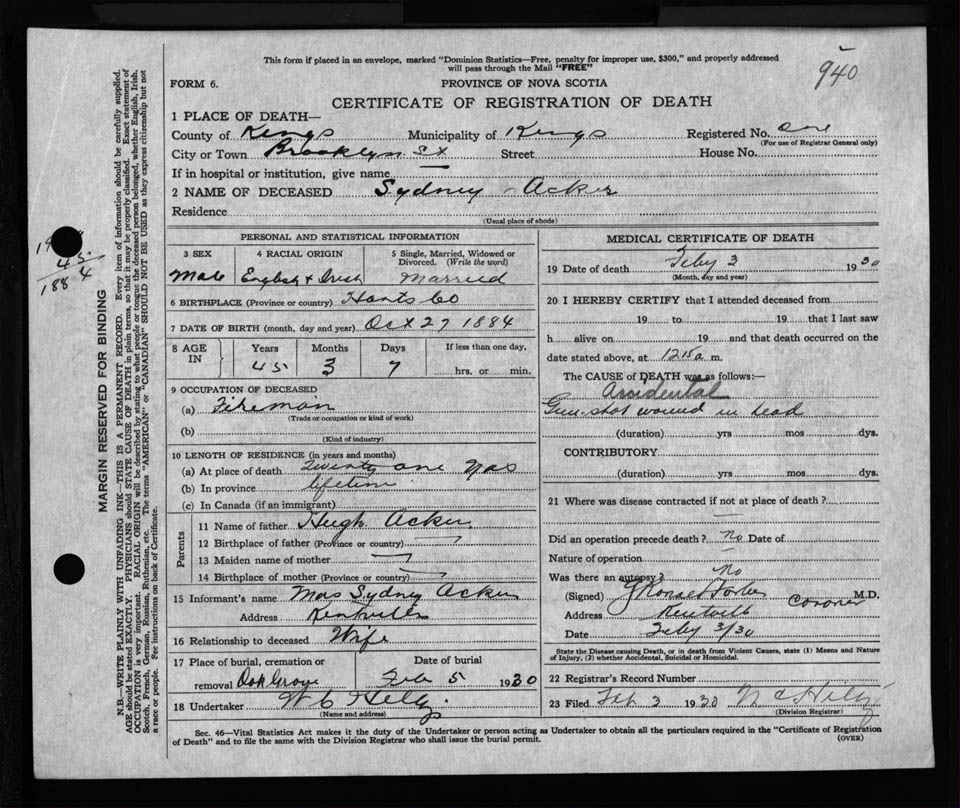 940
This form if placed in an envelope, marked "Dominion Statistics—Free, penalty for improper use, $300," and properly addressed
will pass through the Mail "FREE"
FORM 6.
PROVINCE OF NOVA SCOTIA
CERTIFICATE OF REGISTRATION OF DEATH
1 PLACE OF DEATH—
County of Kings Municipality of Kings Registered No. one
(For use of Registrar General only)
City or Town Brooklyn St Street House No.
If in hospital or institution, give name —
2 NAME OF DECEASED Sydney Acker
Residence
(Usual place of abode)
PERSONAL AND STATISTICAL INFORMATION
3 SEX 4 RACIAL ORIGIN 5 Single, Married, Widowed or
Divorced. (Write the word)
Male English & Irish Married
6 BIRTHPLACE (Province or country) Hants Co
7 DATE OF BIRTH (month, day and year) Oct 27 1884
8 AGE IN Years Months Days If less than one day,
45 3 7 hrs. or min.
9 OCCUPATION OF DECEASED
(a) Fireman
(Trade or occupation or kind of work)
(b)
(Kind of industry)
10 LENGTH OF RESIDENCE (in years and months)
(a) At place of death twenty one yrs
(b) In province lifetime
(c) In Canada (if an immigrant)
Parents
11 Name of father Hugh Acker
12 Birthplace of father (Province or country)
13 Maiden name of mother
14 Birthplace of mother (Province or country)
15 Informant's name Mrs Sydney Acker
Address Kentville
16 Relationship to deceased Wife
17 Place of burial, cremation or Date of burial
removal Oak Grove Feb 5 1930
18 Undertaker W C Hiltz
(Name and address)
MEDICAL CERTIFICATE OF DEATH
19 Date of death Feby 3 1930
(Month, day and year)
20 I HEREBY CERTIFY that I attended deceased from
19 to 19 that I last saw
h alive on 19 and that death occurred on the
date stated above, at 12 15 a m.
The CAUSE of DEATH was as follows:—
Accidental
Gun-shot wound in head
(duration) yrs mos dys.
CONTRIBUTORY
(duration) yrs mos dys.
21 Where was disease contracted if not at place of death?
—
Did an operation precede death? No Date of
Nature of operation —
Was there an autopsy? No
(Signed) J Ronald Forbes Coroner M.D.
Address Kentville
Date Feby 3/30
State the Disease causing Death, or in death from Violent Causes, state (1) Means and Nature
of Injury, (2) whether Accidental, Suicidal or Homicidal.
22 Registrar's Record Number
23 Filed Feb 3 1930 W C Hiltz
(Division Registrar)
Sec. 46—Vital Statistics Act makes it the duty of the Undertaker or person acting as Undertaker to obtain all the particulars required in the "Certificate of Registration
of Death" and to file the same with the Division Registrar who shall issue the burial permit.
(OVER)
MARGIN RESERVED FOR BINDING
N.B.—WRITE PLAINLY WITH UNFADING INK—THIS IS A PERMANENT RECORD. Every item of information should be carefully supplied.
AGE should be stated EXACTLY. PHYSICIANS should STATE CAUSE OF DEATH in plain terms, so that it may be properly classified. Exact statement of
OCCUPATION is very important. RACIAL ORIGIN will be described by stating to what people or tongue the deceased person belonged, whether English, Irish,
Scotch, French, German, Russian, Ruthenian, etc. The terms "AMERICAN" or "CANADIAN" SHOULD NOT BE USED as they express citizenship but not
a race or people. See instructions on back of Certificate.
45
1884